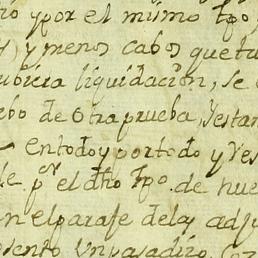 y por el mismo tpo
y menos cabos que tu
ubiera liquidacion, se
ebo de otra prueba, y estan
en todo y por todo y Res
de pr el dho tpo. de nue
en el paraje de la adju
un pasadizo